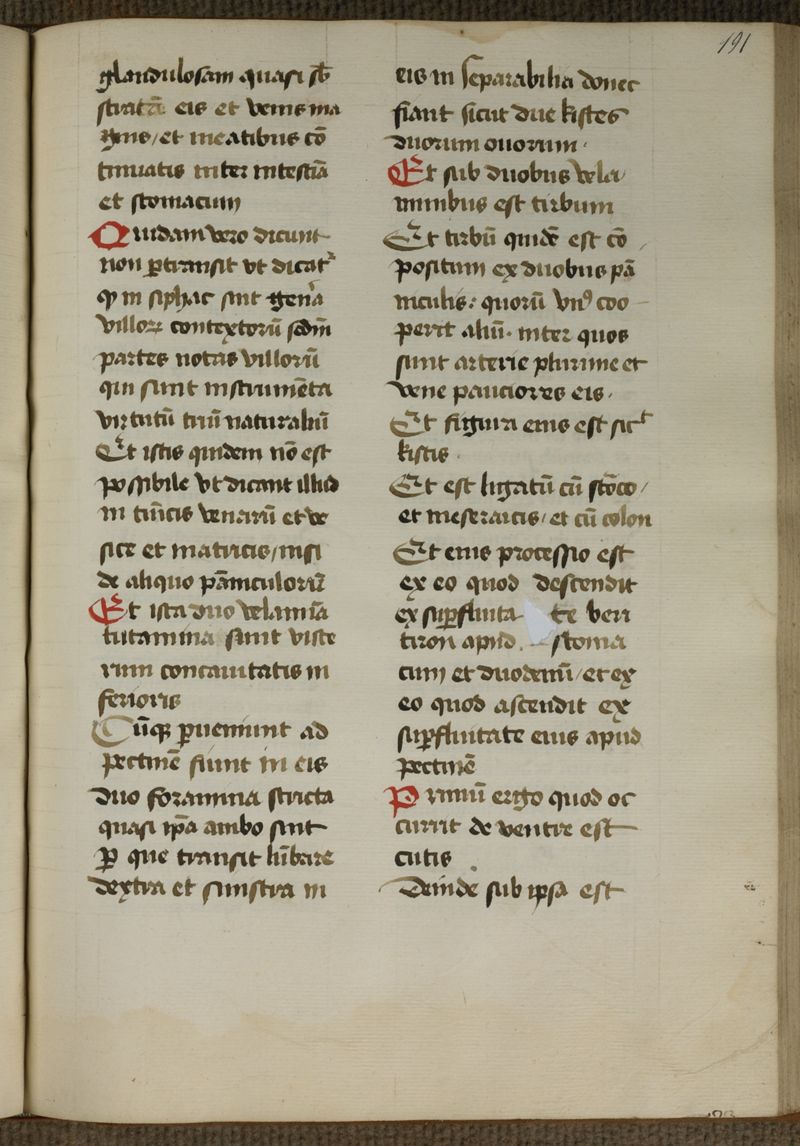 191
glandulosam quasi sb̄
stratā eis et venis ma
gnis / et meatibus cō
tinuatis inter intestīa
et stomacum
Quidam vero dicunt
non ꝑtransit vt dicat᷑
ꝙ in siphac sint gen̄a
villoꝝ contextorū scd̄m
partes notas villorū
qui sunt instrumēta
virtutū triū naturaliū
Et istis quidem nō est
possibile vt dicant illud
in tūicis venarū et ve
sice et matricis / nisi
de aliquo pāniculorū
Et ista duo velamīa
tutamina sunt viste
rum concauitatis in
ferioris
Cūqꝫ ꝑueniunt ad
pectinē fiunt in eis
duo foramina stricta
quasi ip̄a ambo sint
ꝑ que transit lūbare
dextra et sinistra in
eis inseparabilia donec
fiant sicut due kistes
duorum ouorum .
Et sub duobus vela
minibus est zirbum
Et zirbū quidē est cō
positum ex duobus pā
niculis : quorū vnꝰ coo
perit aliū . inter quos
sunt arterie plurime et
vene pauciores eis .
Et figura eius est sic᷑
kistis .
Et est ligatū cū stōco /
et meseraicis / et cū colon
Et eius processio est
ex eo quod descendit
ex suꝑfluita te beri
tiron apud stoma
cum et duodenū / et ex
eo quod ascendit ex
suꝑfluitate eius apud
pectinē
Primū ergo quod oc
currit de ventre est
cutis .
Deinde sub ipsa est